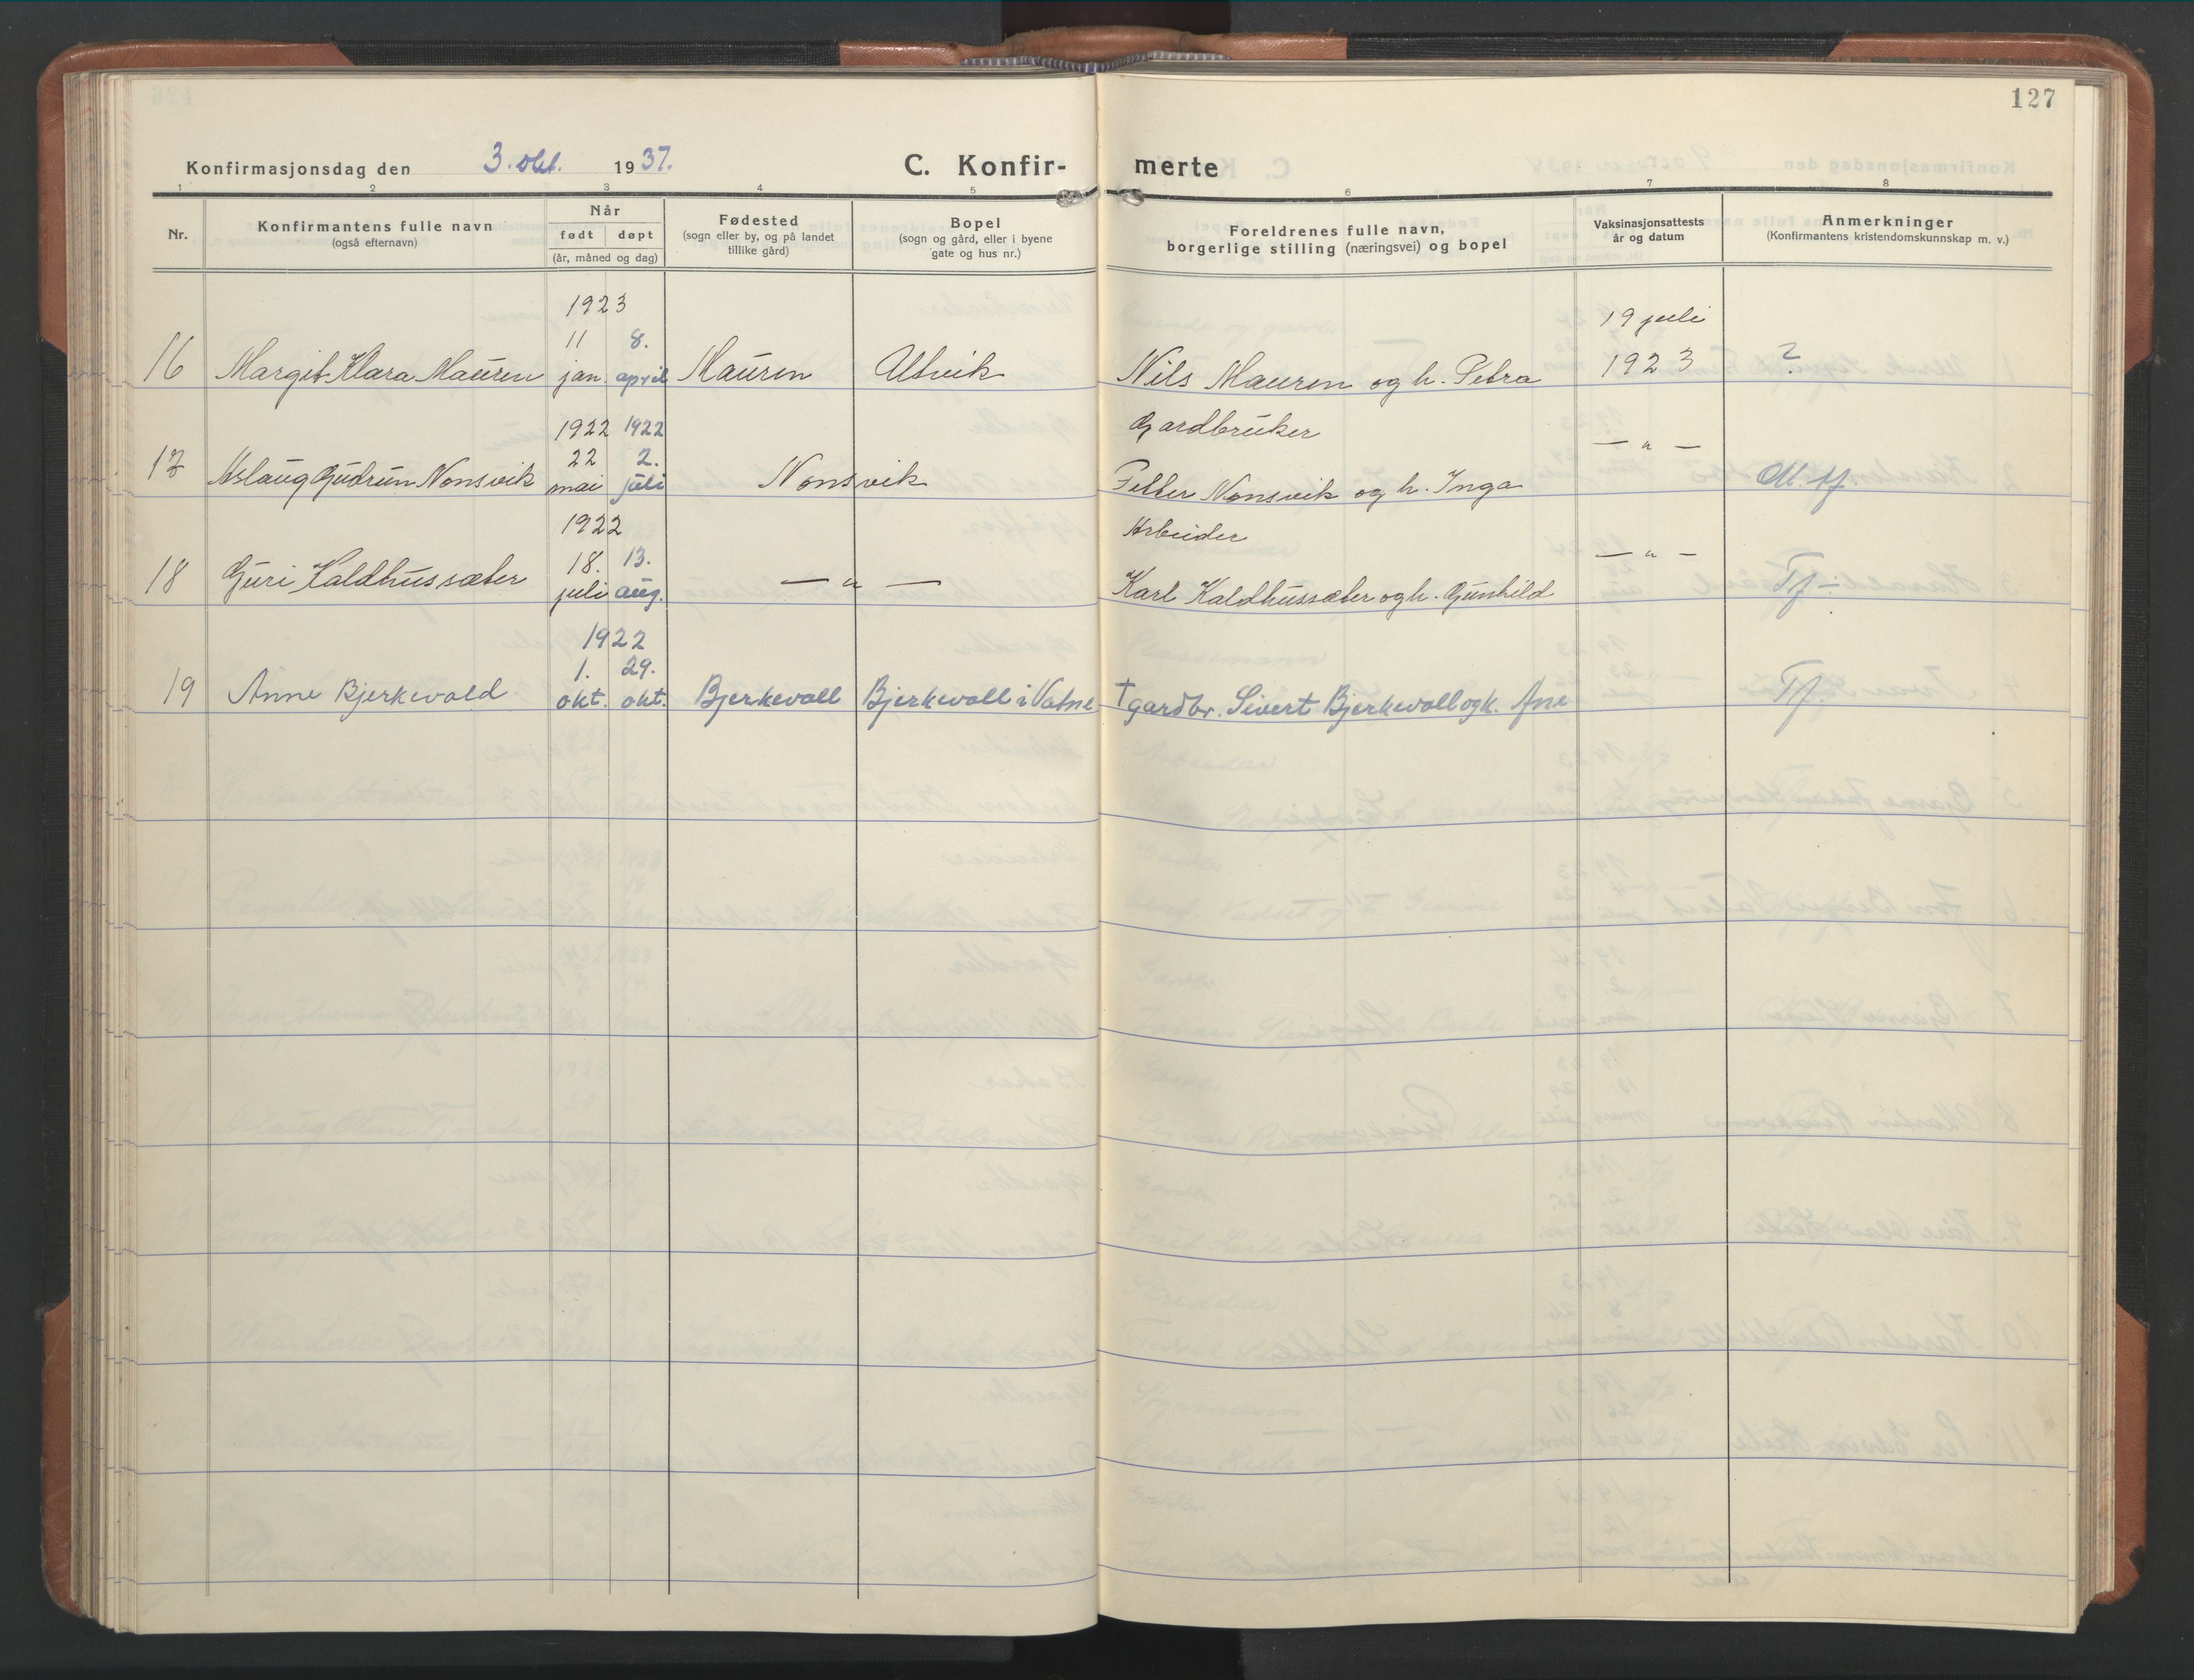 127
Konfirmasjonsdag den 3. okt. 1937.
C. Konfir- merte
1 2 3 4 5 6 7 8
Nr.
Konfirmantens fulle navn
(også efternavn)
Når
født døpt
(år, måned og dag)
Fødested
(sogn eller by, og på landet
tillike gård)
Bopel
(sogn og gård, eller i byene
gate og hus nr.)
Foreldrenes fulle navn,
borgerlige stilling (næringsvei) og bopel
Vaksinasjonsattests
år og datum
Anmerkninger
(Konfirmantens kristendomskunnskap m. v.)
1923 19 juli
11 8.
16 Margit Klara Mauren jan. april Mauren Utvik Nils Mauren og h. Petra 1923 ?
1922 1922 Gardbruker
22 2. — " —
17 Aslaug Gudrun Nonsvik mai juli Nonsvik Petter Nonsvik og h. Inga M. tf.
1922 Arbeider
18. 13. — " —
18 Guri Kaldhussæter juli aug. — " — Karl Kaldhussæter og h. Gunhild Tf ÷
1922
1. 29.
19 Anne Bjerkevold okt. okt. Bjerkevoll Bjerkevoll i Vatne † gardbr. Sivert Bjerkevoll og k. Ane Tf.